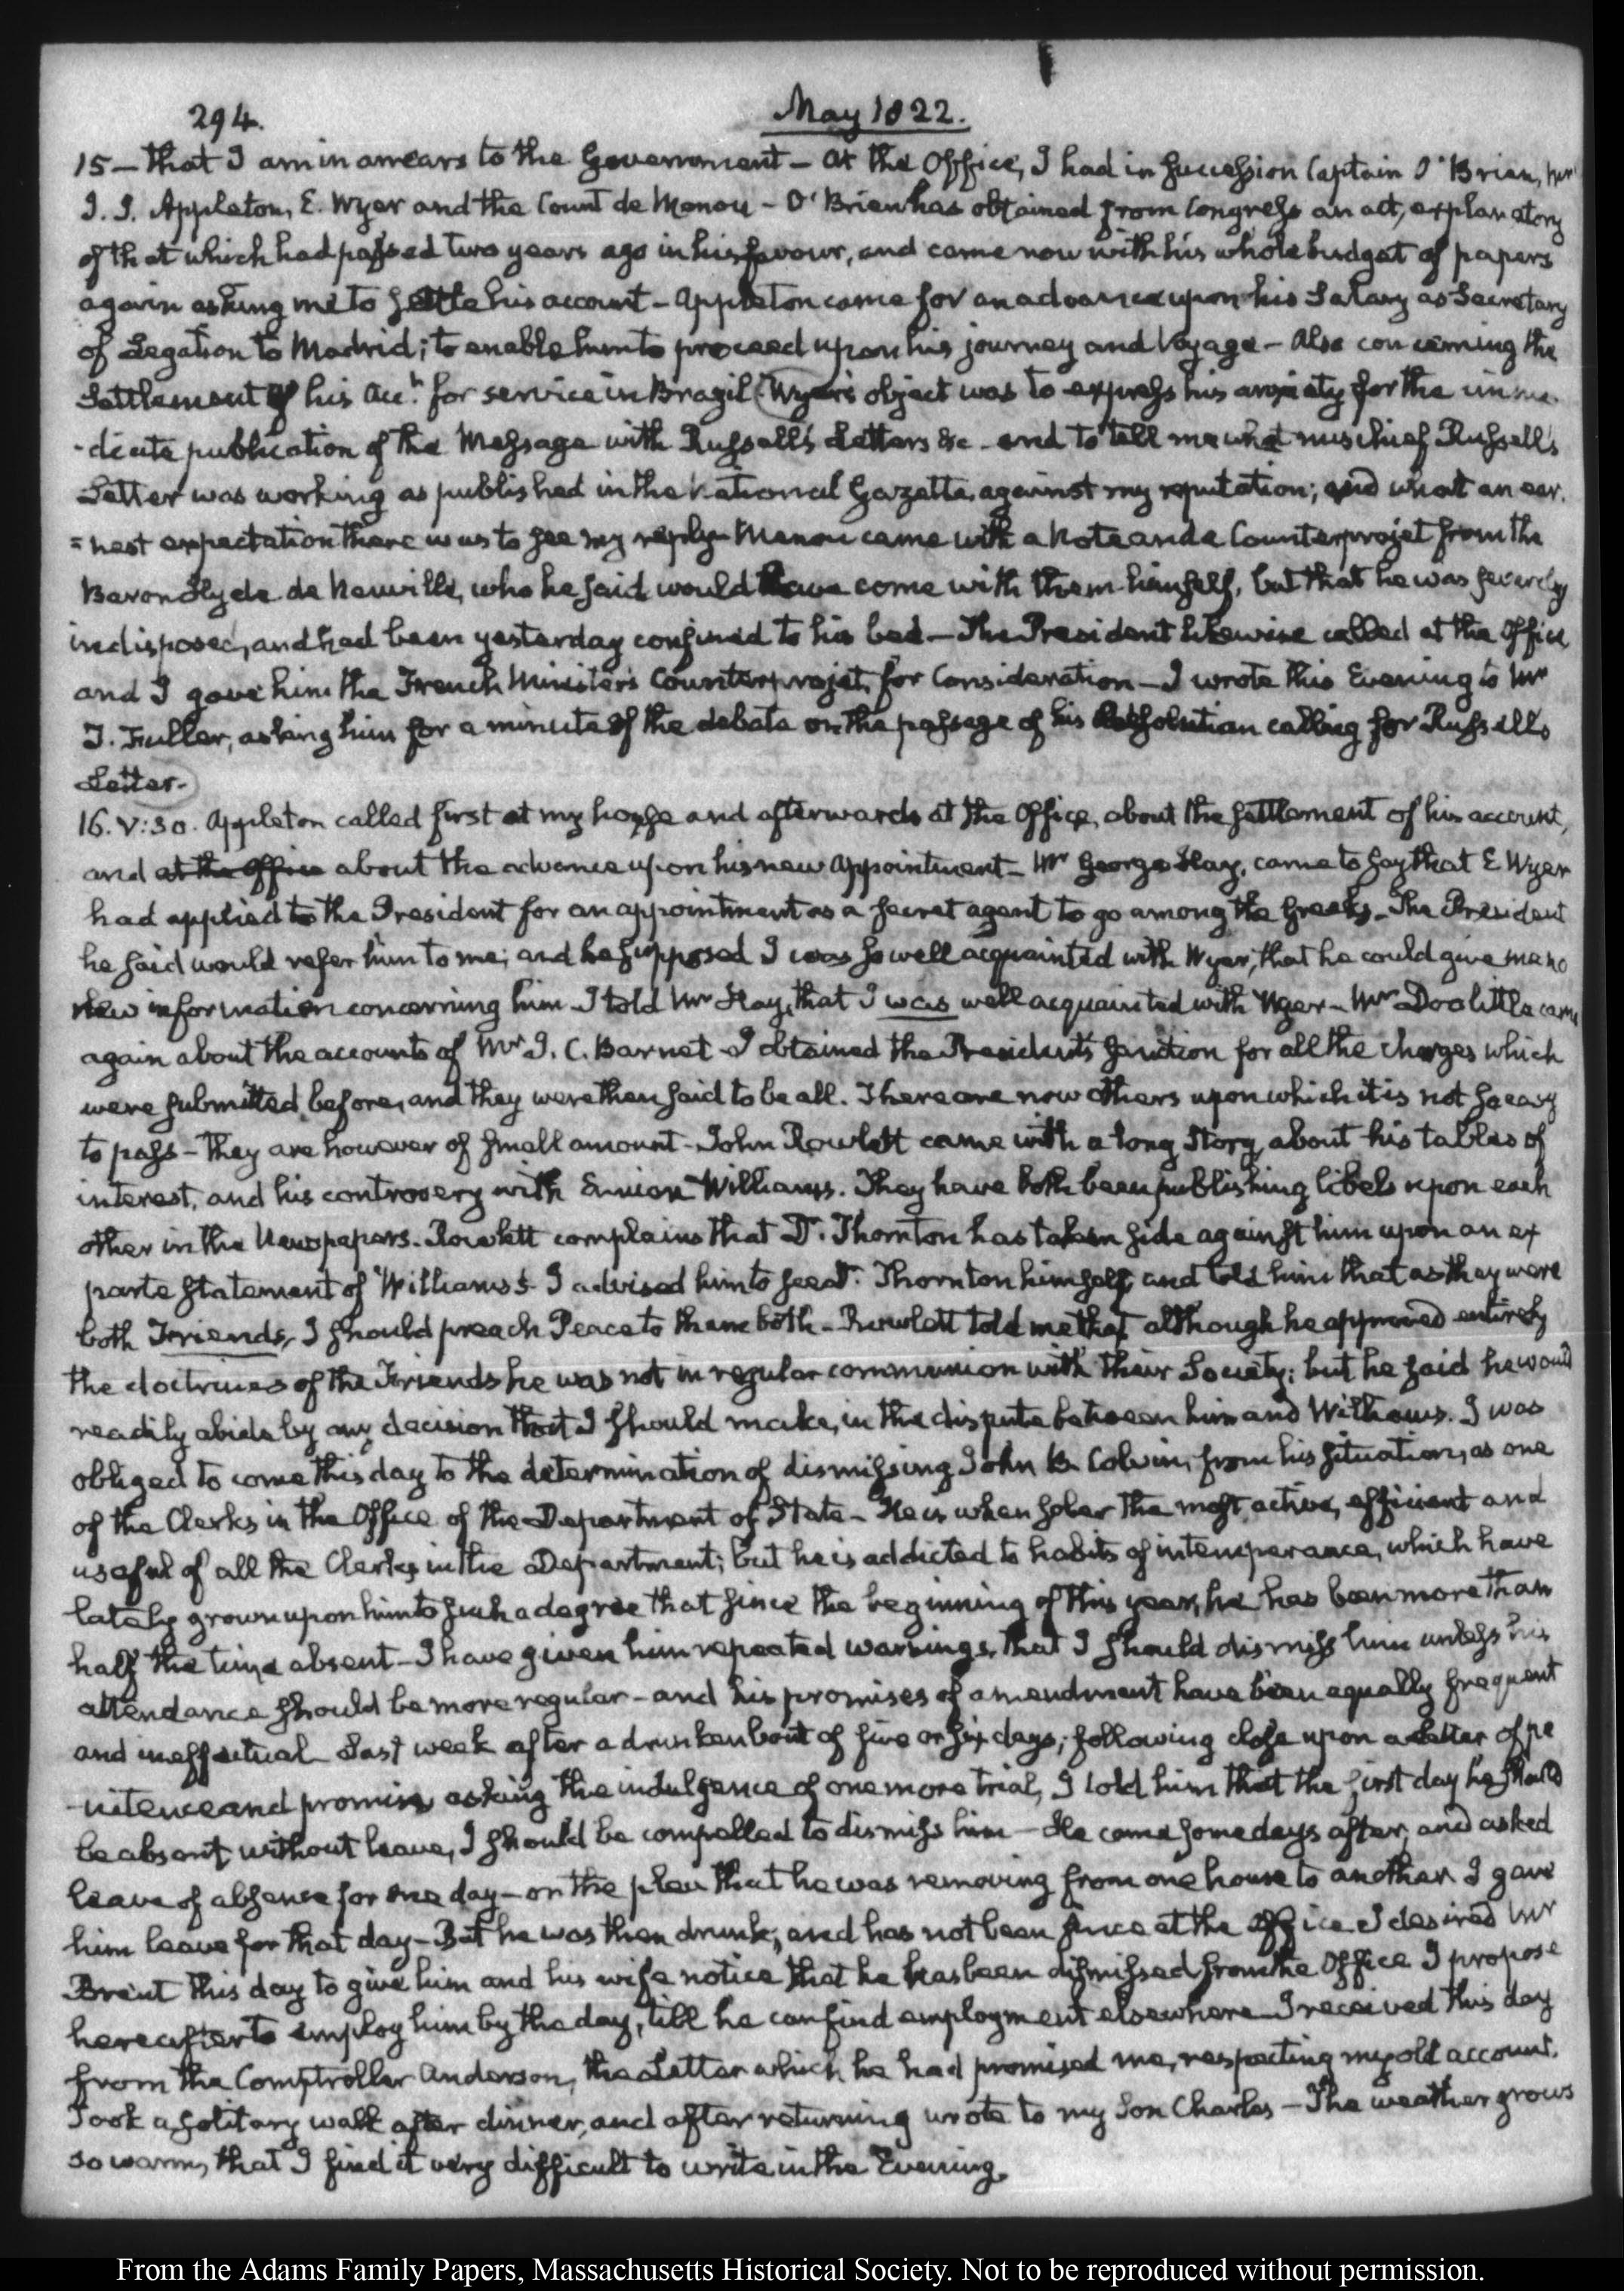 294.
May 1822.
15 — that I am in arrears to the Government — At the Office, I had in succession Captain O'Brien, Mr
J. J. Appleton, E. Wyer and the Count de Menou — O'Brien has obtained from Congress an act, explanatory
of that which had passed two years ago in his favour, and came now with his whole budget of papers
again asking me to settle his account — Appleton came for an advance upon his Salary as Secretary
of Legation to Madrid; to enable him to proceed upon his journey and Voyage — Also concerning the
Settlement of his Acct. for service in Brazil. Wyer's object was to express his anxiety for the imme
-diate publication of the Message with Russell's Letters &c — and to tell me what mischief Russell's
Letter was working as published in the National Gazette, against my reputation; and what an ear.
=nest expectation there was to see my reply — Menou came with a Note and a Counterprojet from the
Baron Hyde de Neuville, who he said would have come with them himself, but that he was severely
indisposed, and had been yesterday confined to his bed — The President likewise called at the Office
and I gave him the French Minister's Counterprojet, for Consideration — I wrote this Evening to Mr
T. Fuller, asking him for a minute of the debate on the passage of his Resolution calling for Russell's
Letter.
16. V:30. Appleton called first at my house and afterwards at the Office, about the settlement of his account,
and at the Office about the advance upon his new Appointment — Mr George Hay, came to say that E Wyer
had applied to the President for an appointment as a secret agent to go among the Greeks — The President
he said would refer him to me; and he supposed I was so well acquainted with Wyer, that he could give me no
new information concerning him — I told Mr Hay, that I was well acquainted with Wyer — Mr Doolittle came
again about the accounts of Mr I. C. Barnet — I obtained the President's sanction for all the charges which
were submitted before, and they were then said to be all. There are now others upon which it is not so easy
to pass — They are however of small amount — John Rowlett came with a long Story about his tables of
interest, and his controversy with Williams. They have both been publishing libels upon each
other in the Newspapers. Rowlett complains that Dr. Thornton has taken side against him upon an ex
parte statement of Williams's. I advised him to see Dr. Thornton himself, and told him that as they were
both Friends, I should preach Peace to them both — Rowlett told me that although he approved entirely
the doctrines of the Friends he was not in regular communion with their Society; but he said he would
readily abide by any decision that I should make, in the dispute between him and Williams. I was
obliged to come this day to the determination of dismissing John B. Colvin, from his situation, as one
of the Clerks in the Office of the Department of State — He is when sober the most active, efficient and
useful of all the Clerks in the Department; but he is addicted to habits of intemperance, which have
lately grown upon him to such a degree that since the beginning of this year, he has been more than
half the time absent — I have given him repeated warnings, that I should dismiss him unless his
attendance should be more regular — and his promises of amendment have been equally frequent
and ineffectual — Last week after a drunken bout of five or six days, following close upon a Letter of pe
-nitence and promise, asking the indulgence of one more trial, I told him that the first day he should
be absent without leave, I should be compelled to dismiss him — He came some days after, and asked
leave of absence for one day — on the plea that he was removing from one house to another. I gave
him leave for that day — But he was then drunk, and has not been since at the Office. I desired Mr
Brent this day to give him and his wife notice that he has been dismissed from the Office. I propose
hereafter to employ him by the day, till he can find employment elsewhere — I received this day
from the Comptroller Anderson, the Letter which he had promised me, respecting my old account.
Took a solitary walk after dinner, and after returning wrote to my Son Charles — The weather grows
so warm, that I find it very difficult to write in the Evening.
From the Adams Family Papers, Massachusetts Historical Society. Not to be reproduced without permission.